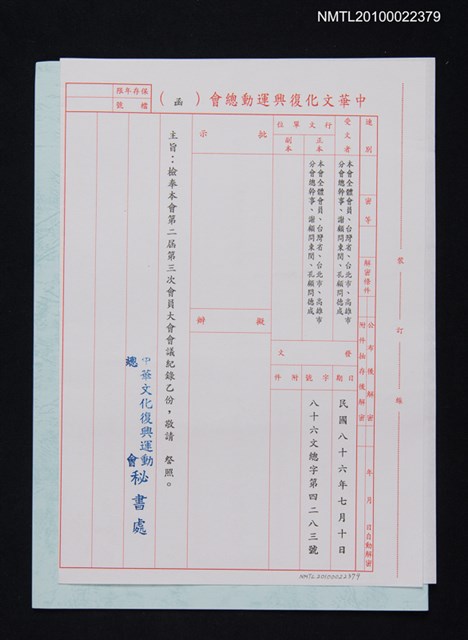 NMTL20100022379
中華文化復興運動總會（函）
保存年限
檔號
速別
密等
解密條件
公布後解密
附件抽存後解密
年 月 日自動解密
裝
訂
線
受文者
本會全體會員、台灣省、台北市、高雄市
分會總幹事、謝顧問東閔、孔顧問德成
行文單位
正本
本會全體會員、台灣省、台北市、高雄市
分會總幹事、謝顧問東閔、孔顧問德成
副本
發文
日期
民國八十六年七月十日
字號
八十六文總字第四二八三號
附件
批示
擬辦
主旨：檢奉本會第二屆第三次會員大會會議紀錄乙份，敬請 詧照。
中華文化復興運動
總會秘書處
NMTL20100022379